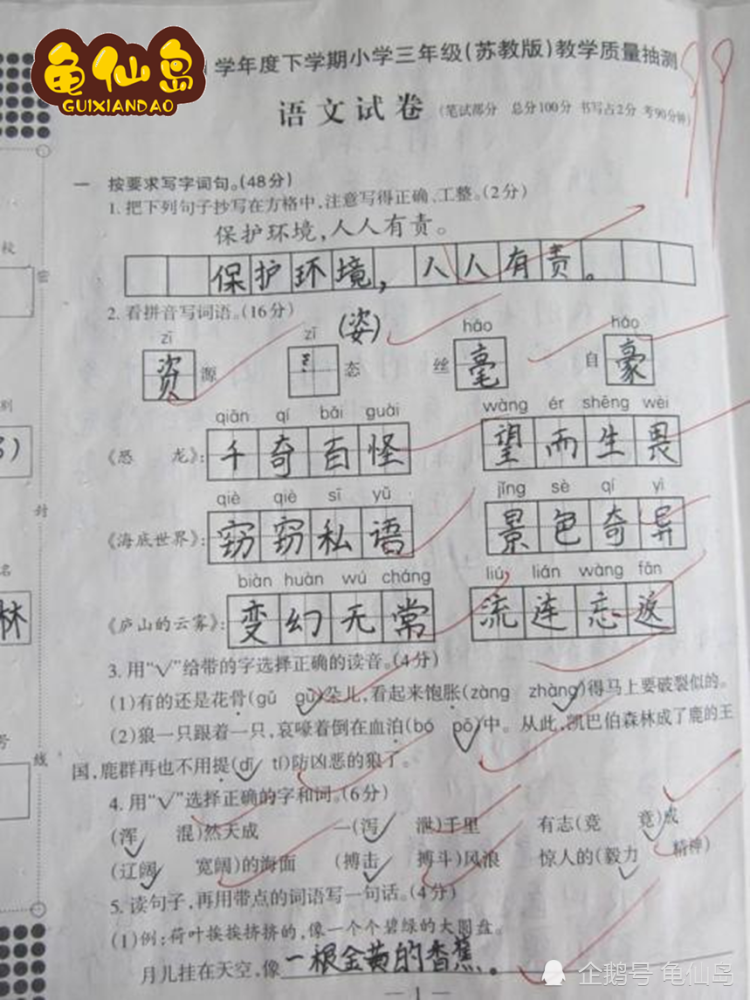 龟仙岛
GUIXIANDAO
学年度下学期小学三年级(苏教版)教学质量抽测
99
语文试卷(笔试部分 总分100分 书写占2分 考90分钟)
一 按要求写字词句。(48分)
1.把下列句子抄写在方格中,注意写得正确、工整。(2分)
保护环境,人人有责。
保护环境,人人有责。
2.看拼音写词语。(16分)
zī zī (姿) háo háo
资源 态 丝毫 自豪
qiān qí bǎi guài wàng ér shēng wèi
《恐龙》: 千奇百怪 望而生畏
qiè qiè sī yǔ jǐng sè qí yì
《海底世界》: 窃窃私语 景色奇异
biàn huàn wú cháng liú lián wàng fǎn
《庐山的云雾》: 变幻无常 流连忘返
3.用“√”给带的字选择正确的读音。(4分)
(1)有的还是花骨(gū gǔ)朵儿,看起来饱胀(zàng zhàng)得马上要破裂似的。
(2)狼一只跟着一只,哀嚎着倒在血泊(bó pō)中。从此,凯巴伯森林成了鹿的王
国,鹿群再也不用提(dī tí)防凶恶的狼了。
4.用“√”选择正确的字和词。(6分)
(浑 混)然天成 一(泻 泄)千里 有志(竞 竟)成
(辽阔 宽阔)的海面 (搏击 搏斗)风浪 惊人的(毅力 精神)
5.读句子,再用带点的词语写一句话。(4分)
(1)例:荷叶挨挨挤挤的,像一个个碧绿的大圆盘。
月儿挂在天空,像一根金黄的香蕉。
— 1 —
企鹅号 龟仙岛
校
密
别
封
名
林
号
线